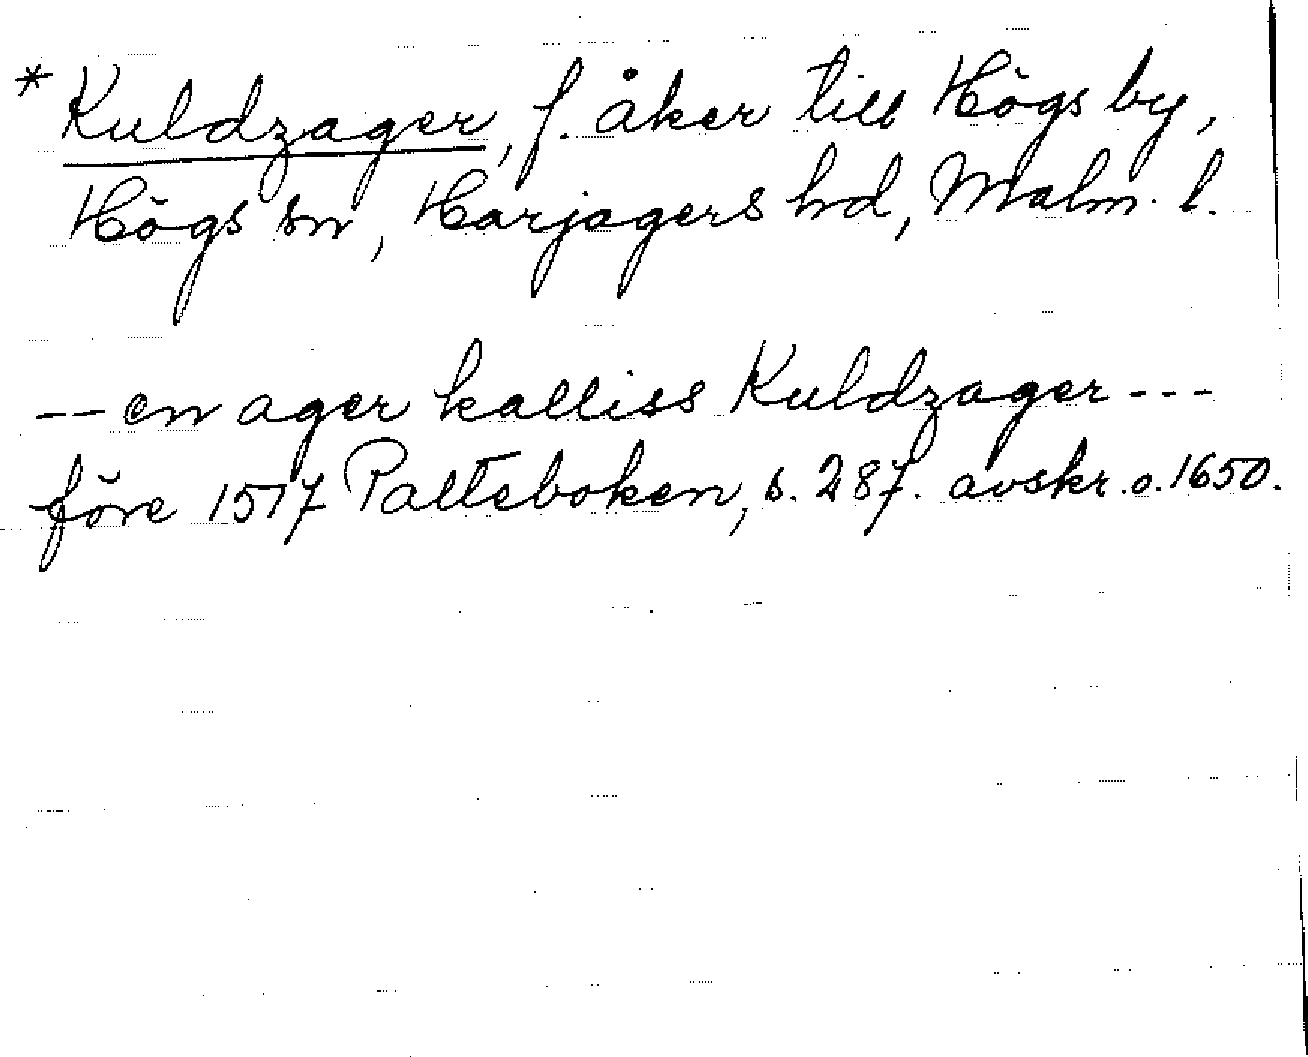 * Kuldzager, f. åker till Högs by,
Högs sn, Harjagers hd, Malm. l.
-- en ager kalliss Kuldzager ---
före 1517 Palteboken, s. 287. avskr. o. 1650.